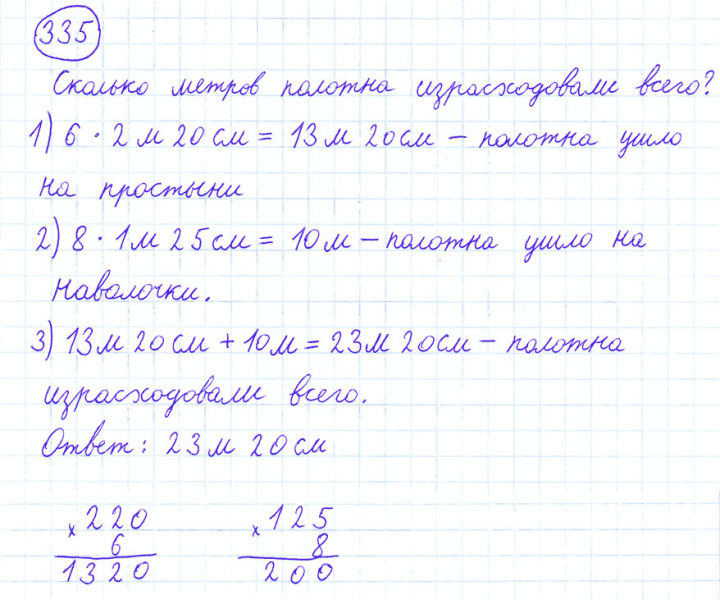 335
Сколько метров полотна израсходовали всего?
1) 6 · 2 м 20 см = 13 м 20 см – полотна ушло
на простыни
2) 8 · 1 м 25 см = 10 м – полотна ушло на
наволочки.
3) 13 м 20 см + 10 м = 23 м 20 см – полотна
израсходовали всего.
Ответ: 23 м 20 см
× 220 × 125
6 8
1320 200